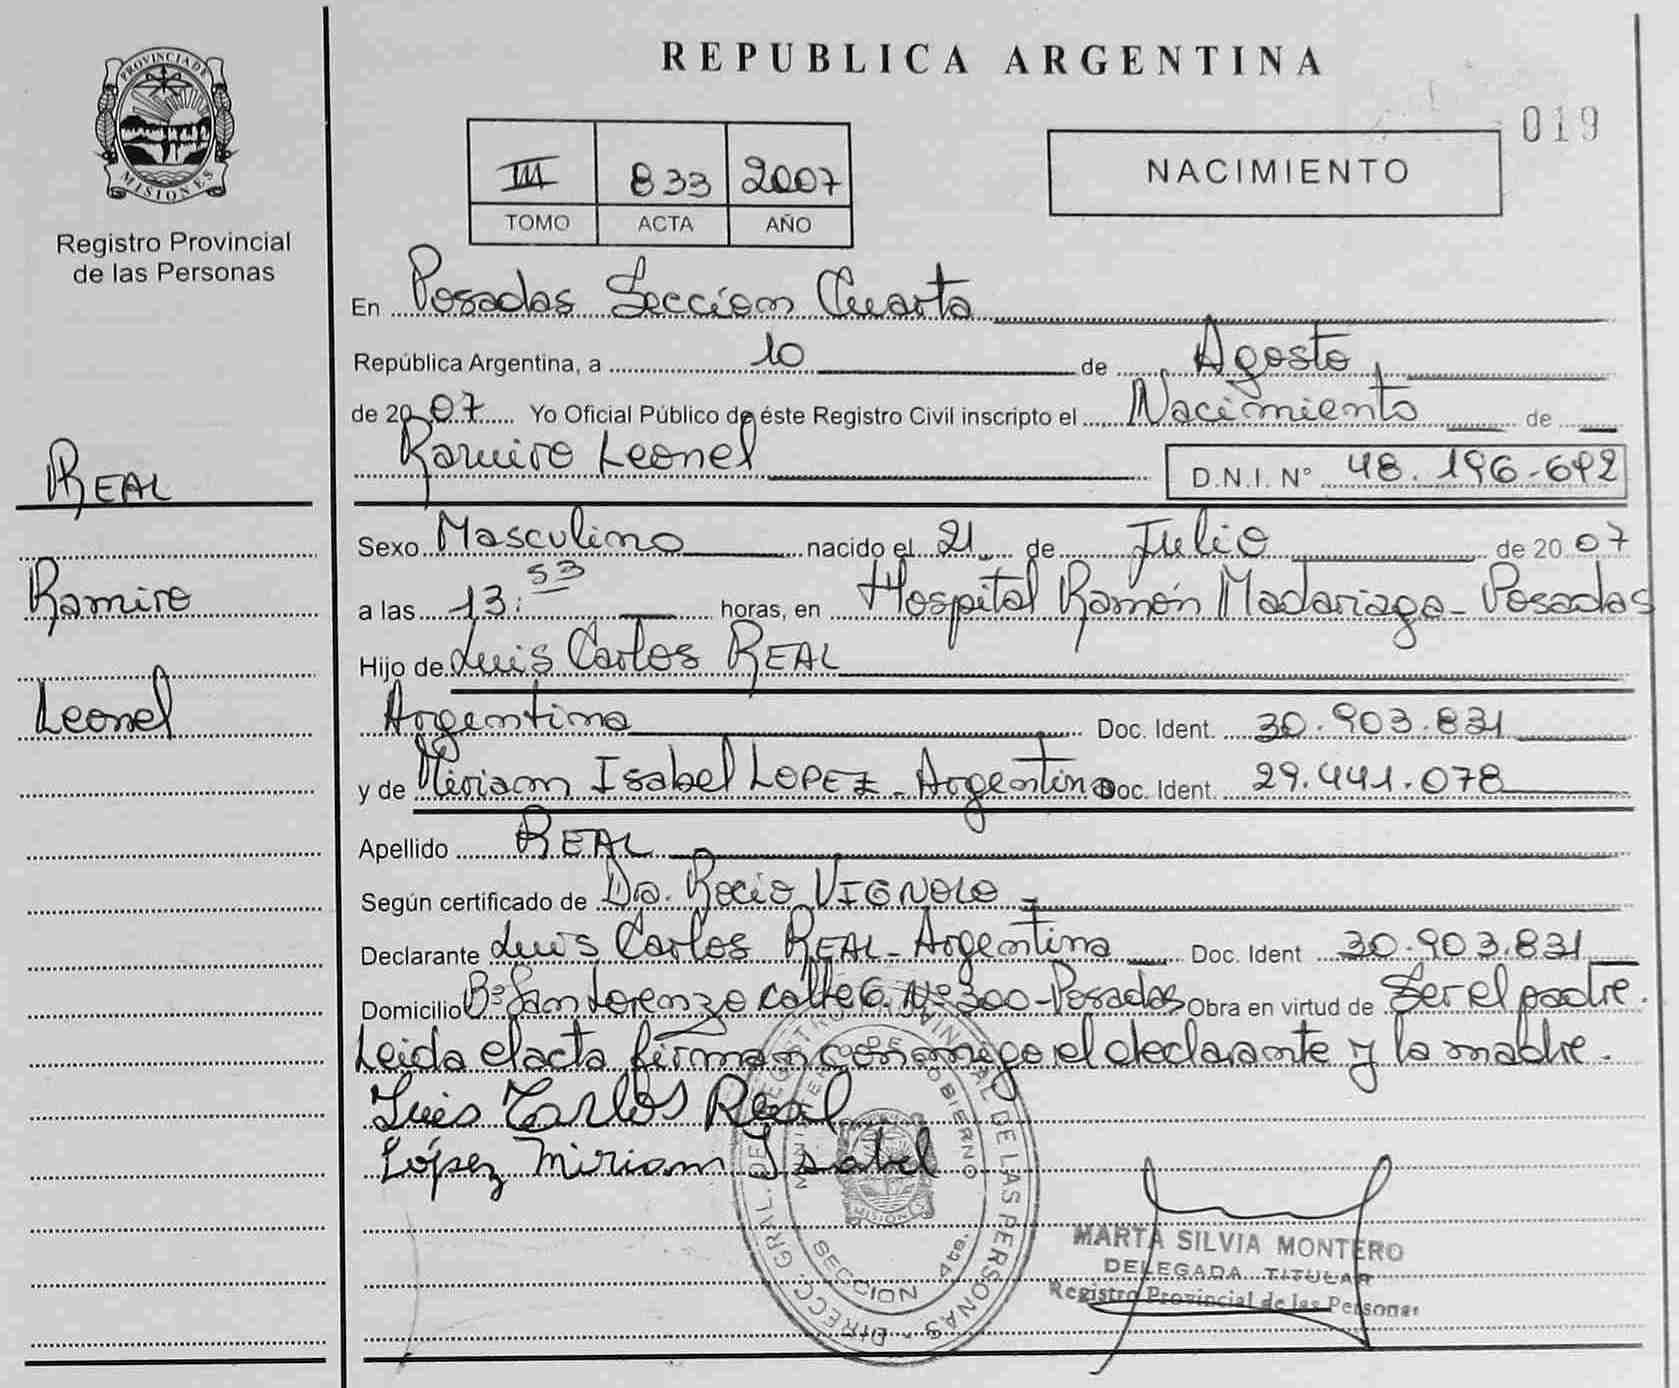 PROVINCIA DE
MISIONES
Registro Provincial
de las Personas
REAL
Ramiro
Leonel
REPUBLICA ARGENTINA
019
III 833 2007
TOMO ACTA AÑO
NACIMIENTO
En Posadas Seccion Cuarta
República Argentina, a 10 de Agosto
de 2007 Yo Oficial Público de éste Registro Civil inscripto el Nacimiento de
Ramiro Leonel D.N.I. N° 48.196.692
Sexo Masculino nacido el 21 de Julio de 2007
a las 13:53 horas, en Hospital Ramón Madariaga - Posadas
Hijo de Luis Carlos REAL
Argentina Doc. Ident. 30.903.831
y de Miriam Isabel LOPEZ - Argentina Doc. Ident. 29.441.078
Apellido REAL
Según certificado de Dra. Rocio VIGNOLO -
Declarante Luis Carlos REAL - Argentina Doc. Ident 30.903.831
Domicilio B° San Lorenzo calle 6 N° 300 - Posadas Obra en virtud de Ser el padre.
Leida el acta firman conmigo el declarante y la madre.
Luis Carlos Real
López Miriam Isabel
DIRECC. GRAL. DE REGISTRO PROVINCIAL DE LAS PERSONAS
MINISTERIO DE GOBIERNO
MISIONES
SECCION 4ta.
MARTA SILVIA MONTERO
DELEGADA TITULAR
Registro Provincial de las Personas